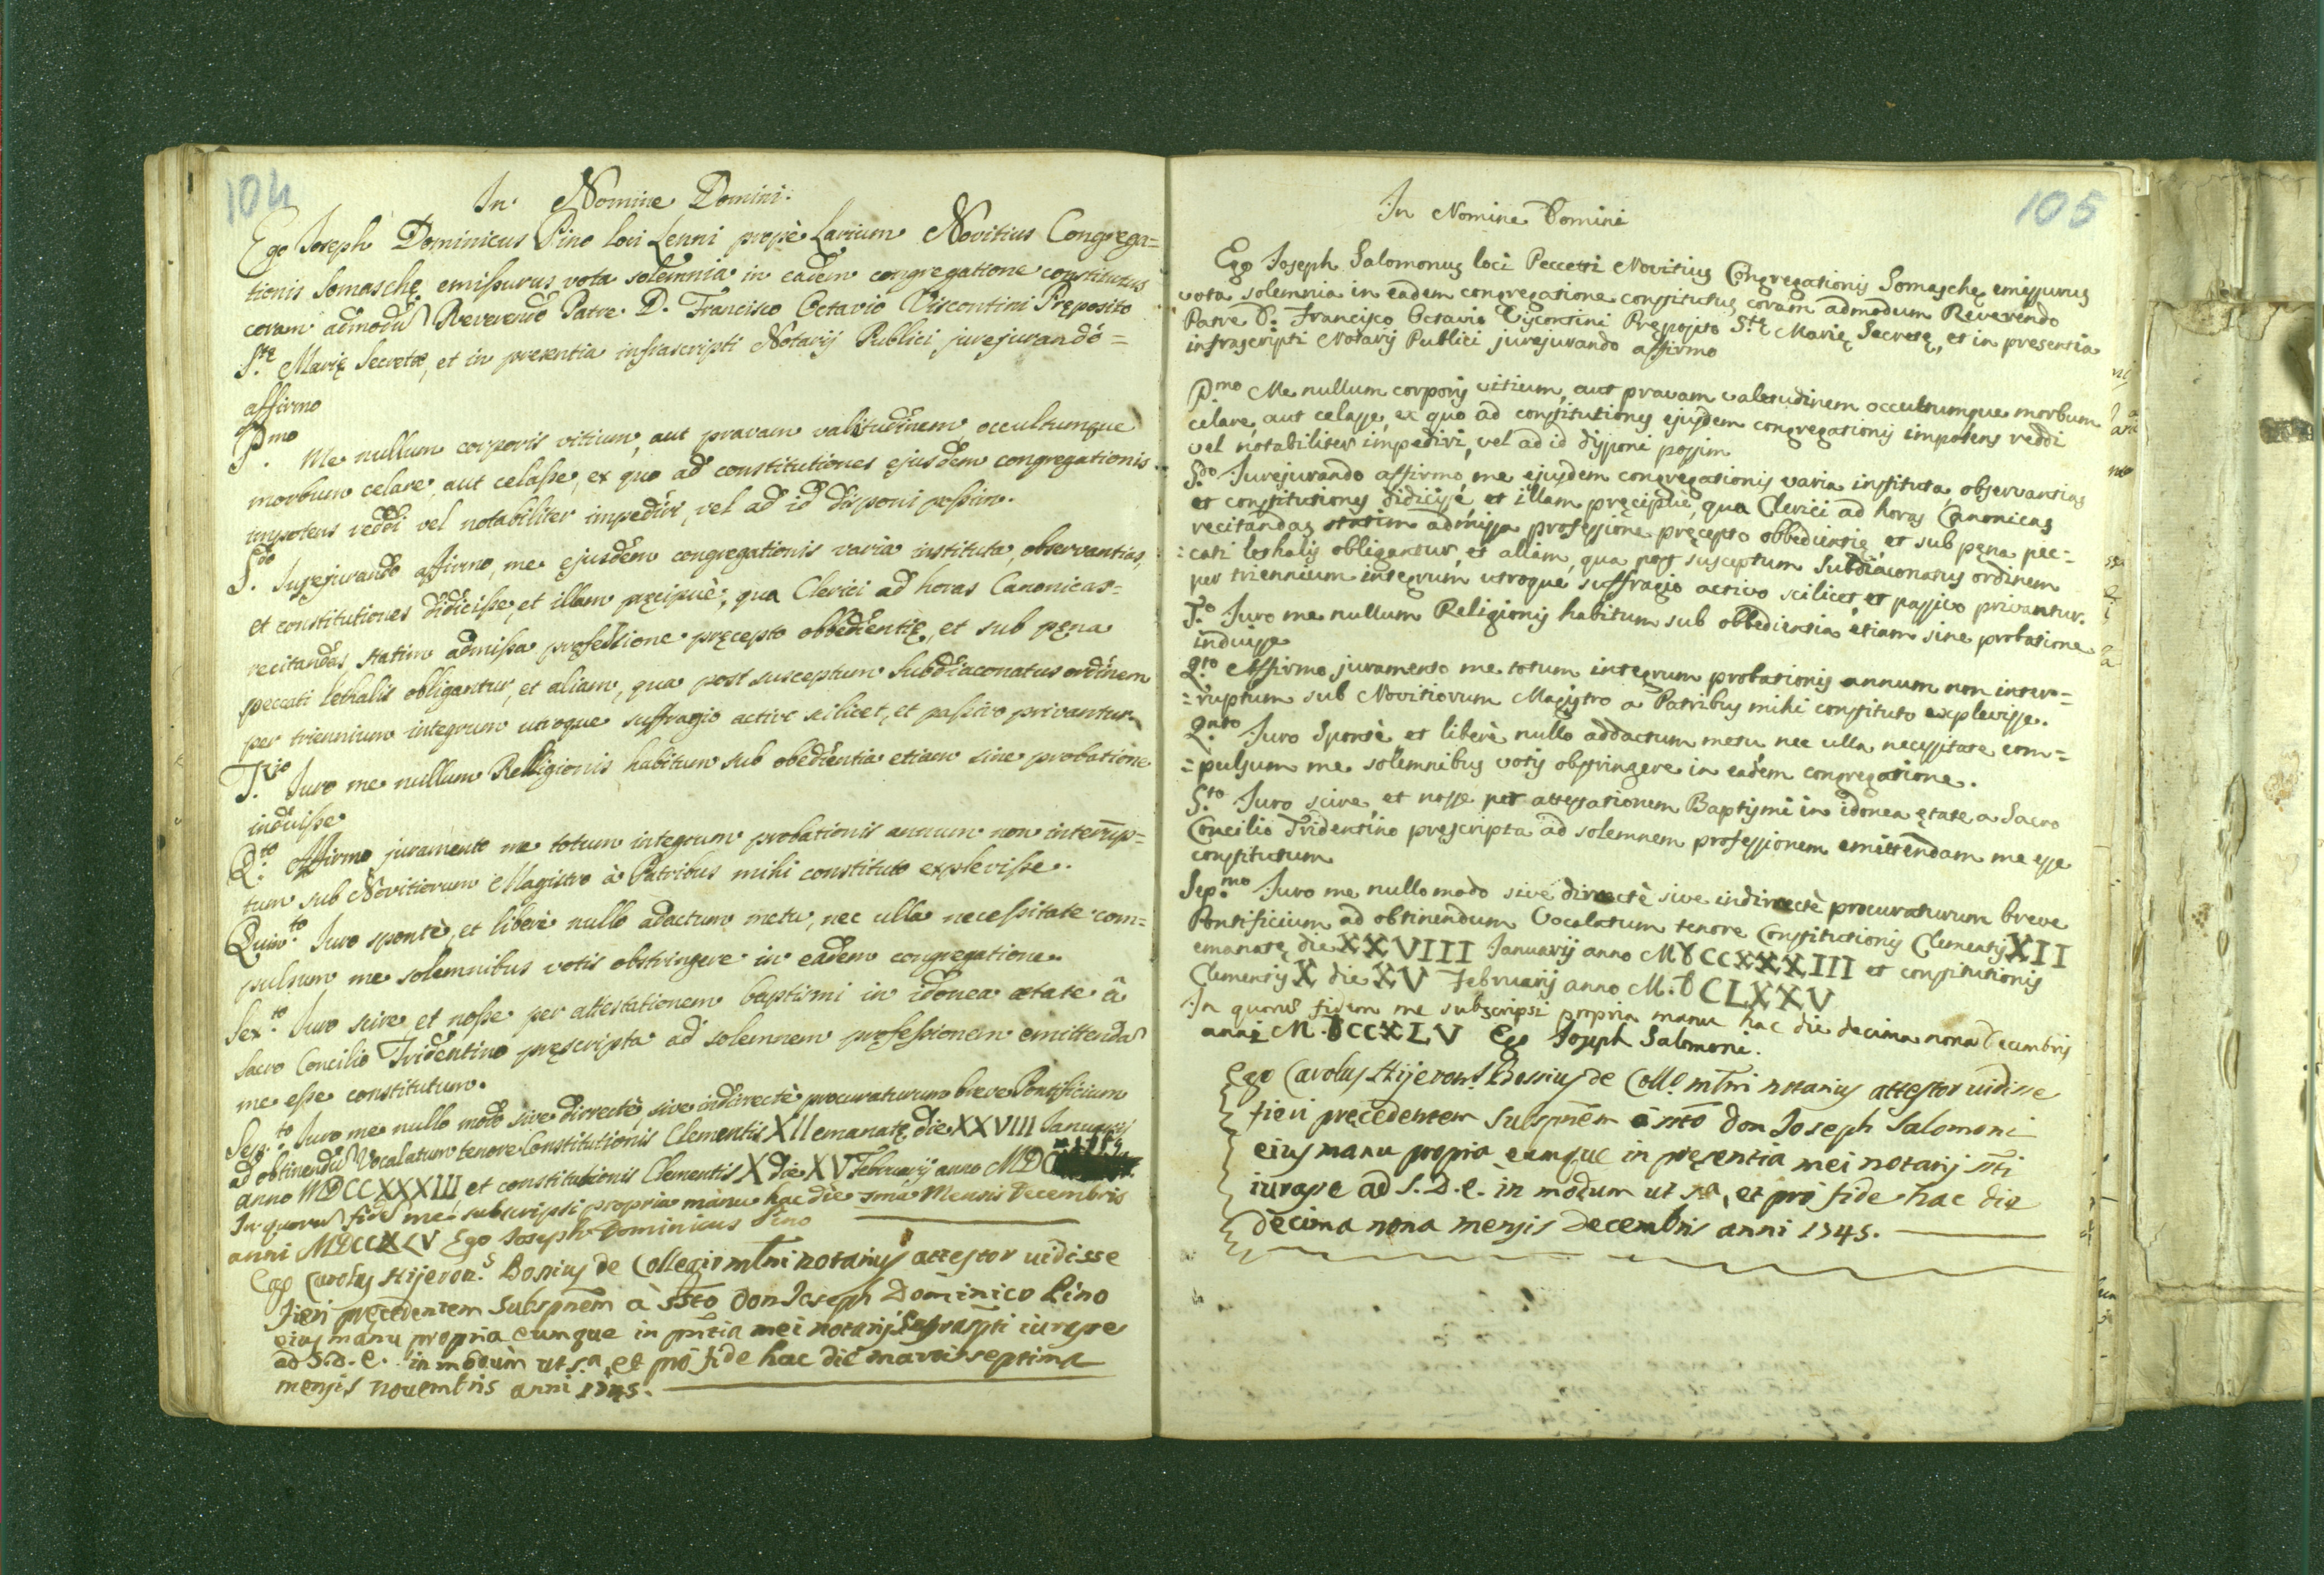 104
In Nomine Domini.
Ego Joseph Dominicus Pino loci Lenni propè Larium Novitius Congrega=
tionis Somaschę emissurus vota solemnia in eadem congregatione constitutus
coram admodũ Reverendo Patre D. Francisco Octavio Viscontini Pręposito
S.tę Marię Secretæ, et in presentia infrascripti Notarij Publici jurejurando =
affirmo
P.mo Me nullum corporis vitium, aut pravam valitudinem occultumque
morbum celare, aut celasse, ex quo ad constitutiones ejusdem congregationis
impotens reddi vel notabiliter impediri, vel ad id disponi possim.
S.do Jurejurando affirmo, me ejusdem congregationis varia instituta, observantias,
et constitutiones didicisse, et illam pręcipuè, qua Clerici ad horas Canonicas =
recitandas statim admissa professione pręcepto obbedientię, et sub pęna
peccati lethalis obligantur, et aliam, qua post susceptum Subdiaconatus ordinem
per triennium integrum utroque suffragio active scilicet, et passivo privantur.
T.rio Juro me nullum Relligionis habitum sub obedientia etiam sine probatione
induisse
Q.to Affirmo juramento me totum integrum probationis annum non interrup=
tum sub Novitiorum Magistro à Patribus mihi constituto explevisse.
Quin.to Juro spontè, et liberè nullo adactum metu, nec ulla necessitate com=
pulsum me solemnibus votis obstringere in eadem congregatione.
Sex.to Juro scire, et nosse per attestationem baptismi in idonea ætate â
Sacro Concilio Tridentino pręscripta ad solemnem professionem emittendã
me esse constitutum.
Sep.to Juro me nullo modo sive dirrectè, sive indirectè procuraturum breve Pontificium
ad obtinendũ Vocalatum tenore Constitutionis Clementis XII emanatę die XXVIII Januarij
anno MDCCXXXIII et constitutionis Clementis X die XV Februarij anno MDC
In quorũ fidẽ me subscripsi propria manu hac die Mensis Decembris
anni MDCCXLV Ego Joseph Dominicus Pino
Ego Carolus Hijeron.s Bossius de Collegio mlni notarius attestor uidisse
fieri pręcedentem Subspnem à ssto Don Joseph Dominico Pino
eius manu propria eumque in pntia mei notarij iurasse
ad S.D.E. in modum ut s.a, et pro fide hac die septima
mensis novembris anni 1745.
105
In Nomine Domini
Ego Joseph Salomonus loci Peccetti Novitius Congregationis Somaschę emissurus
vota solemnia in eadem congregatione constitutus coram admodum Reverendo
Patre D. Francisco Octavio Viscontini Pręposito S.tę Marię Secretę, et in presentia
infrascripti Notarij Publici jurejurando affirmo
P.mo Me nullum corporis vitium, aut pravam valetudinem occultumque morbum
celare, aut celasse, ex quo ad constitutiones ejusdem congregationis impotens reddi
vel notabiliter impediri, vel ad id disponi possim
S.do Jurejurando affirmo, me ejusdem congregationis varia instituta, observantias
et constitutiones didicisse, et illam pręcipuè, qua Clerici ad horas Canonicas
recitandas statim admissa professione pręcepto obbedientię et sub pęna pec=
=cati lethalis obligantur, et aliam, qua post susceptum Subdiaconatus ordinem
per triennium integrum utroque suffragio activo scilicet et passivo privantur.
T.o Juro me nullum Religionis habitum sub obbedientia etiam sine probatione
induisse
Q.to Affirmo juramento me totum integrum probationis annum non inter=
=ruptum sub Novitiorum Magistro a Patribus mihi constituto explevisse.
Q.nto Juro Spontè et liberè nullo addactum metu nec ulla necessitate com=
=pulsum me solemnibus votis obstringere in eadem congregatione.
S.to Juro scire et nosse per attestationem Baptismi in idonea ętate a Sacro
Concilio Tridentino pręscripta ad solemnem professionem emittendam me esse
constitutum
Sep.mo Juro me nullo modo sive dirrectè sive indirrectè procuraturum breve
Pontificium ad obtinendum Vocalatum tenore Constitutionis Clementis XII
emanatę die XXVIII Januarij anno MDCCXXXIII et constitutionis
Clementis X die XV Februarij anno M.DCLXXV
In quorũ fidem me subscripsi propria manu hac die decima nona Decembris
anni M.DCCXLV Ego Joseph Salomoni.
Ego Carolus Hijeron.s Bossius de Coll.o mlni notarius attestor uidisse
fieri pręcedentem Subspnem à ssto Don Joseph Salomoni
eius manu propria eumque in pręsentia mei notarij ssti
iurasse ad S.D.E. in modum ut s.a, et pro fide hac die
decima nona mensis Decembris anni 1745.